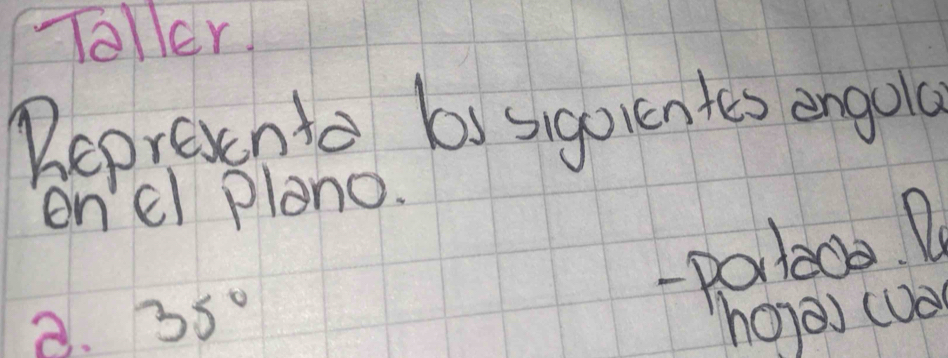 Taller.
Representa los siguientes angulo
en el plano.
-portada.
a. 35°
hojas cua